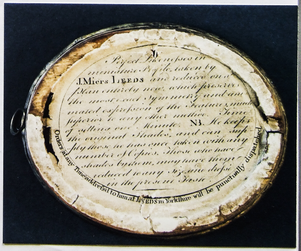 Perfect Likenesses in
miniature Profile taken by
J. Miers LEEDS and reduced on a
plan entirely new, which preserves
the most exact Symmetry and ani-
mated expression of the Features, much
superior to any other method. Time
of sitting one Minute. NB. He keeps
the original shades, and can sup-
ply those he has once taken with any
number of Copies. Those who have
shades by them, may have them
reduced to any size, and
in the present Taste.
Orders addressed to him at LEEDS in Yorkshire will be punctually dispatched